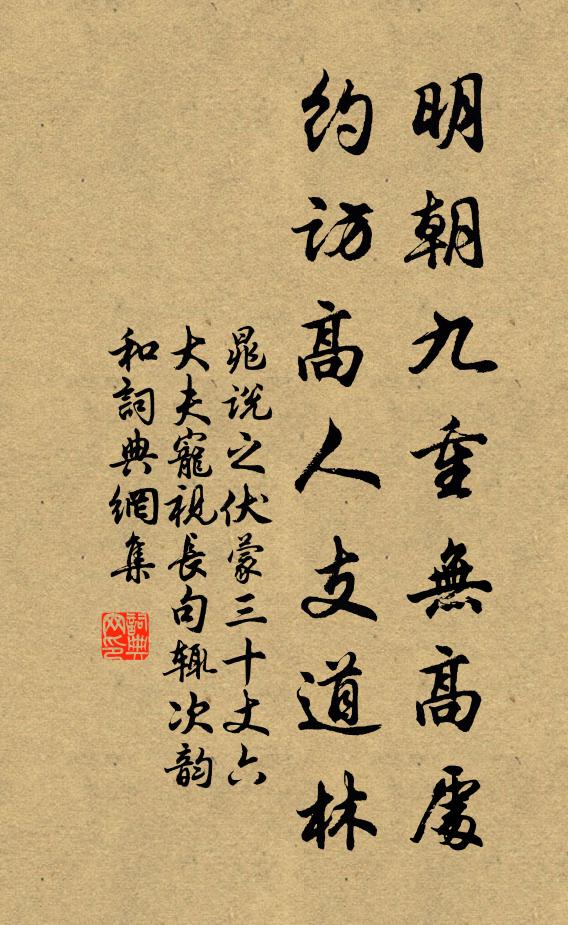 明朝九重無高處
約訪高人支道林
晁說之伏蒙三十丈六
大夫寵視長句輒次韵
和詞典網集
詞典
网印